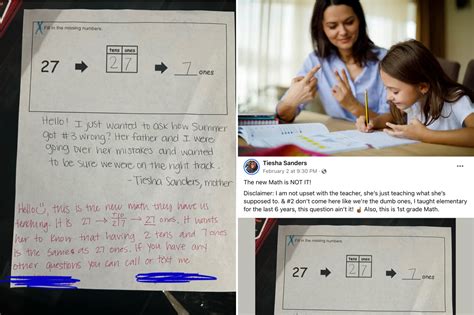 X Fill in the missing numbers.
tens ones
27 2 7 7 ones
Hello! I just wanted to ask how Summer
got #3 wrong? Her father and I were
going over her mistakes and wanted
to be sure we were on the right track.
- Tiesha Sanders, mother
Hello, this is the new math they have us
teaching. It is 27 → 2|7 → 27 ones. It wants
her to know that having 2 tens and 7 ones
is the same as 27 ones. If you have any
other questions you can call or text me
Tiesha Sanders
February 2 at 9:30 PM
The new Math is NOT IT!
Disclaimer: I am not upset with the teacher, she's just teaching what she's
supposed to. & #2 don't come here like we're the dumb ones, I taught elementary
for the last 6 years, this question ain't it! ☝️ Also, this is 1st grade Math.
X Fill in the missing numbers.
tens ones
27 2 7 7 ones